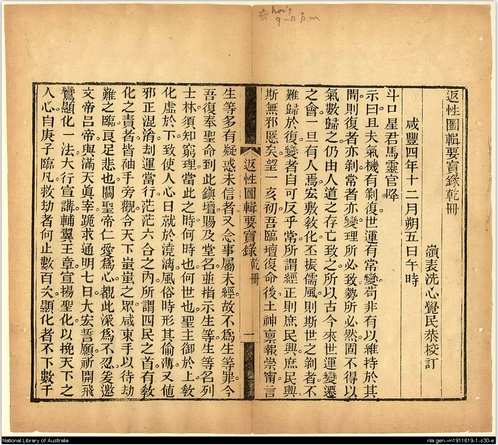 返性圖輯要寶錄乾冊
嶺表洗心覺民恭校訂
咸豐四年十二月朔五日午時
斗口星君馬靈官降
示曰且夫氣機有剝復世運有常變苟非有以維持於其
間則復者亦剝常者亦變理所必致勢所必然固不得以
氣數之仍由人道之存亡致之所以古今來世運變遷
之會一旦有人焉宏敷敎化丕振儒風則斯世之剝者不
難歸於復變者自可反乎常所謂經正則庶民興庶民興
斯無邪慝矣望一亥初吾臨壇復命後土神禀報崇甯言
返性圖輯要寶錄 乾冊 一
生等多有疑惑未信者又念事屬未經故不爲生等罪今
吾復奉聖命到此鎮壇賜及堂名並指示生等生等名列
士林須知窮理當此之時何時也何世也聖主御於上敎
化虛於下致使人心日就於澆漓風俗時形其偷薄又値
邪正混淆刦運當行茫茫六合之內所謂四民之首有敎
化之責者皆袖手旁觀令天下蚩蚩之眾咸束手以待劫
難之臨良足悲也關聖帝仁愛爲心覩此深爲不忍爰邀
文帝呂帝與滿天眞宰跪求通明七日大宏誓願祈開飛
鸞顯化一法大行宣講輔翼王章宣揚聖化以挽天下之
人心自庚子臨凡救劫者何止數百次顯化者不下數千
National Library of Australia
nla.gen-vn1911619-1-s30-e